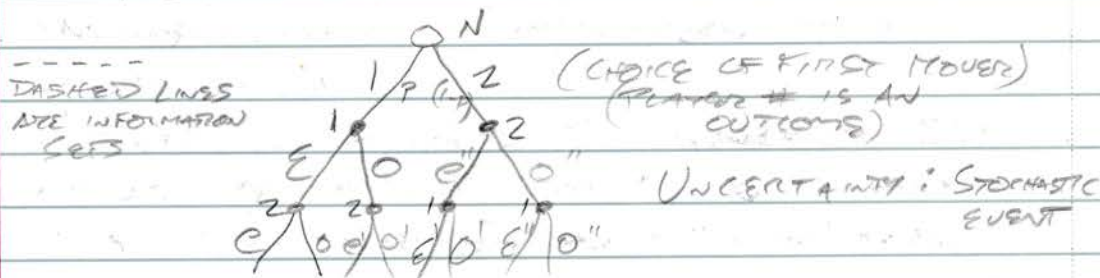 N
- - - - -
DASHED LINES
ARE INFORMATION
SETS
1 P (1-P) 2
(CHOICE OF FIRST MOVER)
(PLAYER # IS AN
OUTCOME)
1 2
E O e'' o''
UNCERTAINTY : STOCHASTIC
EVENT
2 2 1 1
e o e' o' E' O' E'' O''